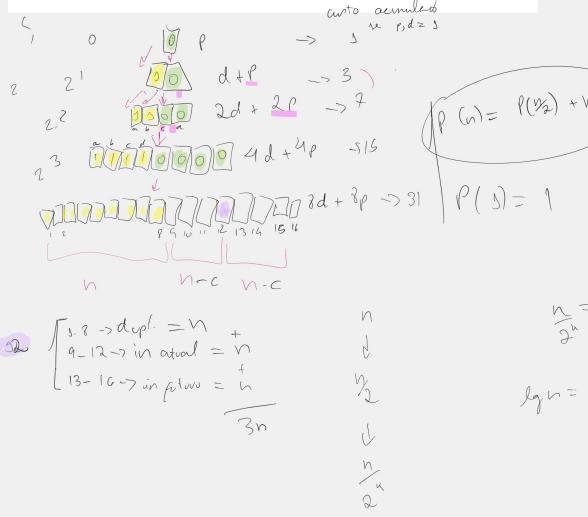 custo acumulado
se p,d = 1
1 0 0 p -> 1
2 2^1 1 0 d + p -> 3
2^2 1 1 0 0 2d + 2p -> 7
a b c d
a b c d
2^3 1 1 1 1 0 0 0 0 4d + 4p -> 15
8d + 8p -> 31
1 2 8 9 10 11 12 13 14 15 16
n n-c n-c
P(n) = P(n/2) +
P(1) = 1
12
1-8 -> dupl. = n
+
9-12 -> in atual = n
+
13-16 -> in futuro = n
3n
n
↓
n/2
↓
n/2^k
n/2^k =
lg n =